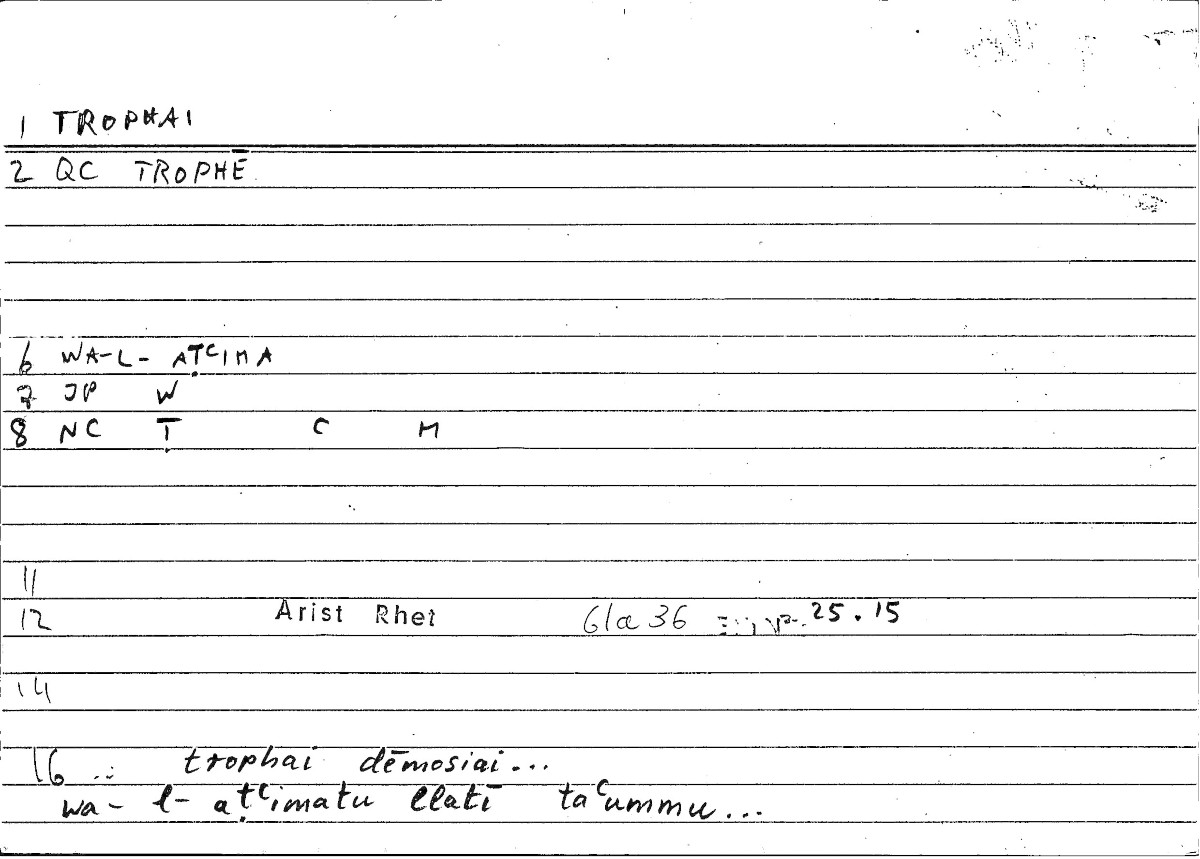 1 TROPHAI
2 QC TROPHĒ
6 WA-L- AṬᶜIMA
7 JP W
8 NC Ṭ C M
11
12 Arist Rhet 61a36 25.15
14
16 .. trophai dēmosiai...
wa- l- aṭᶜimatu llatī taᶜummu...